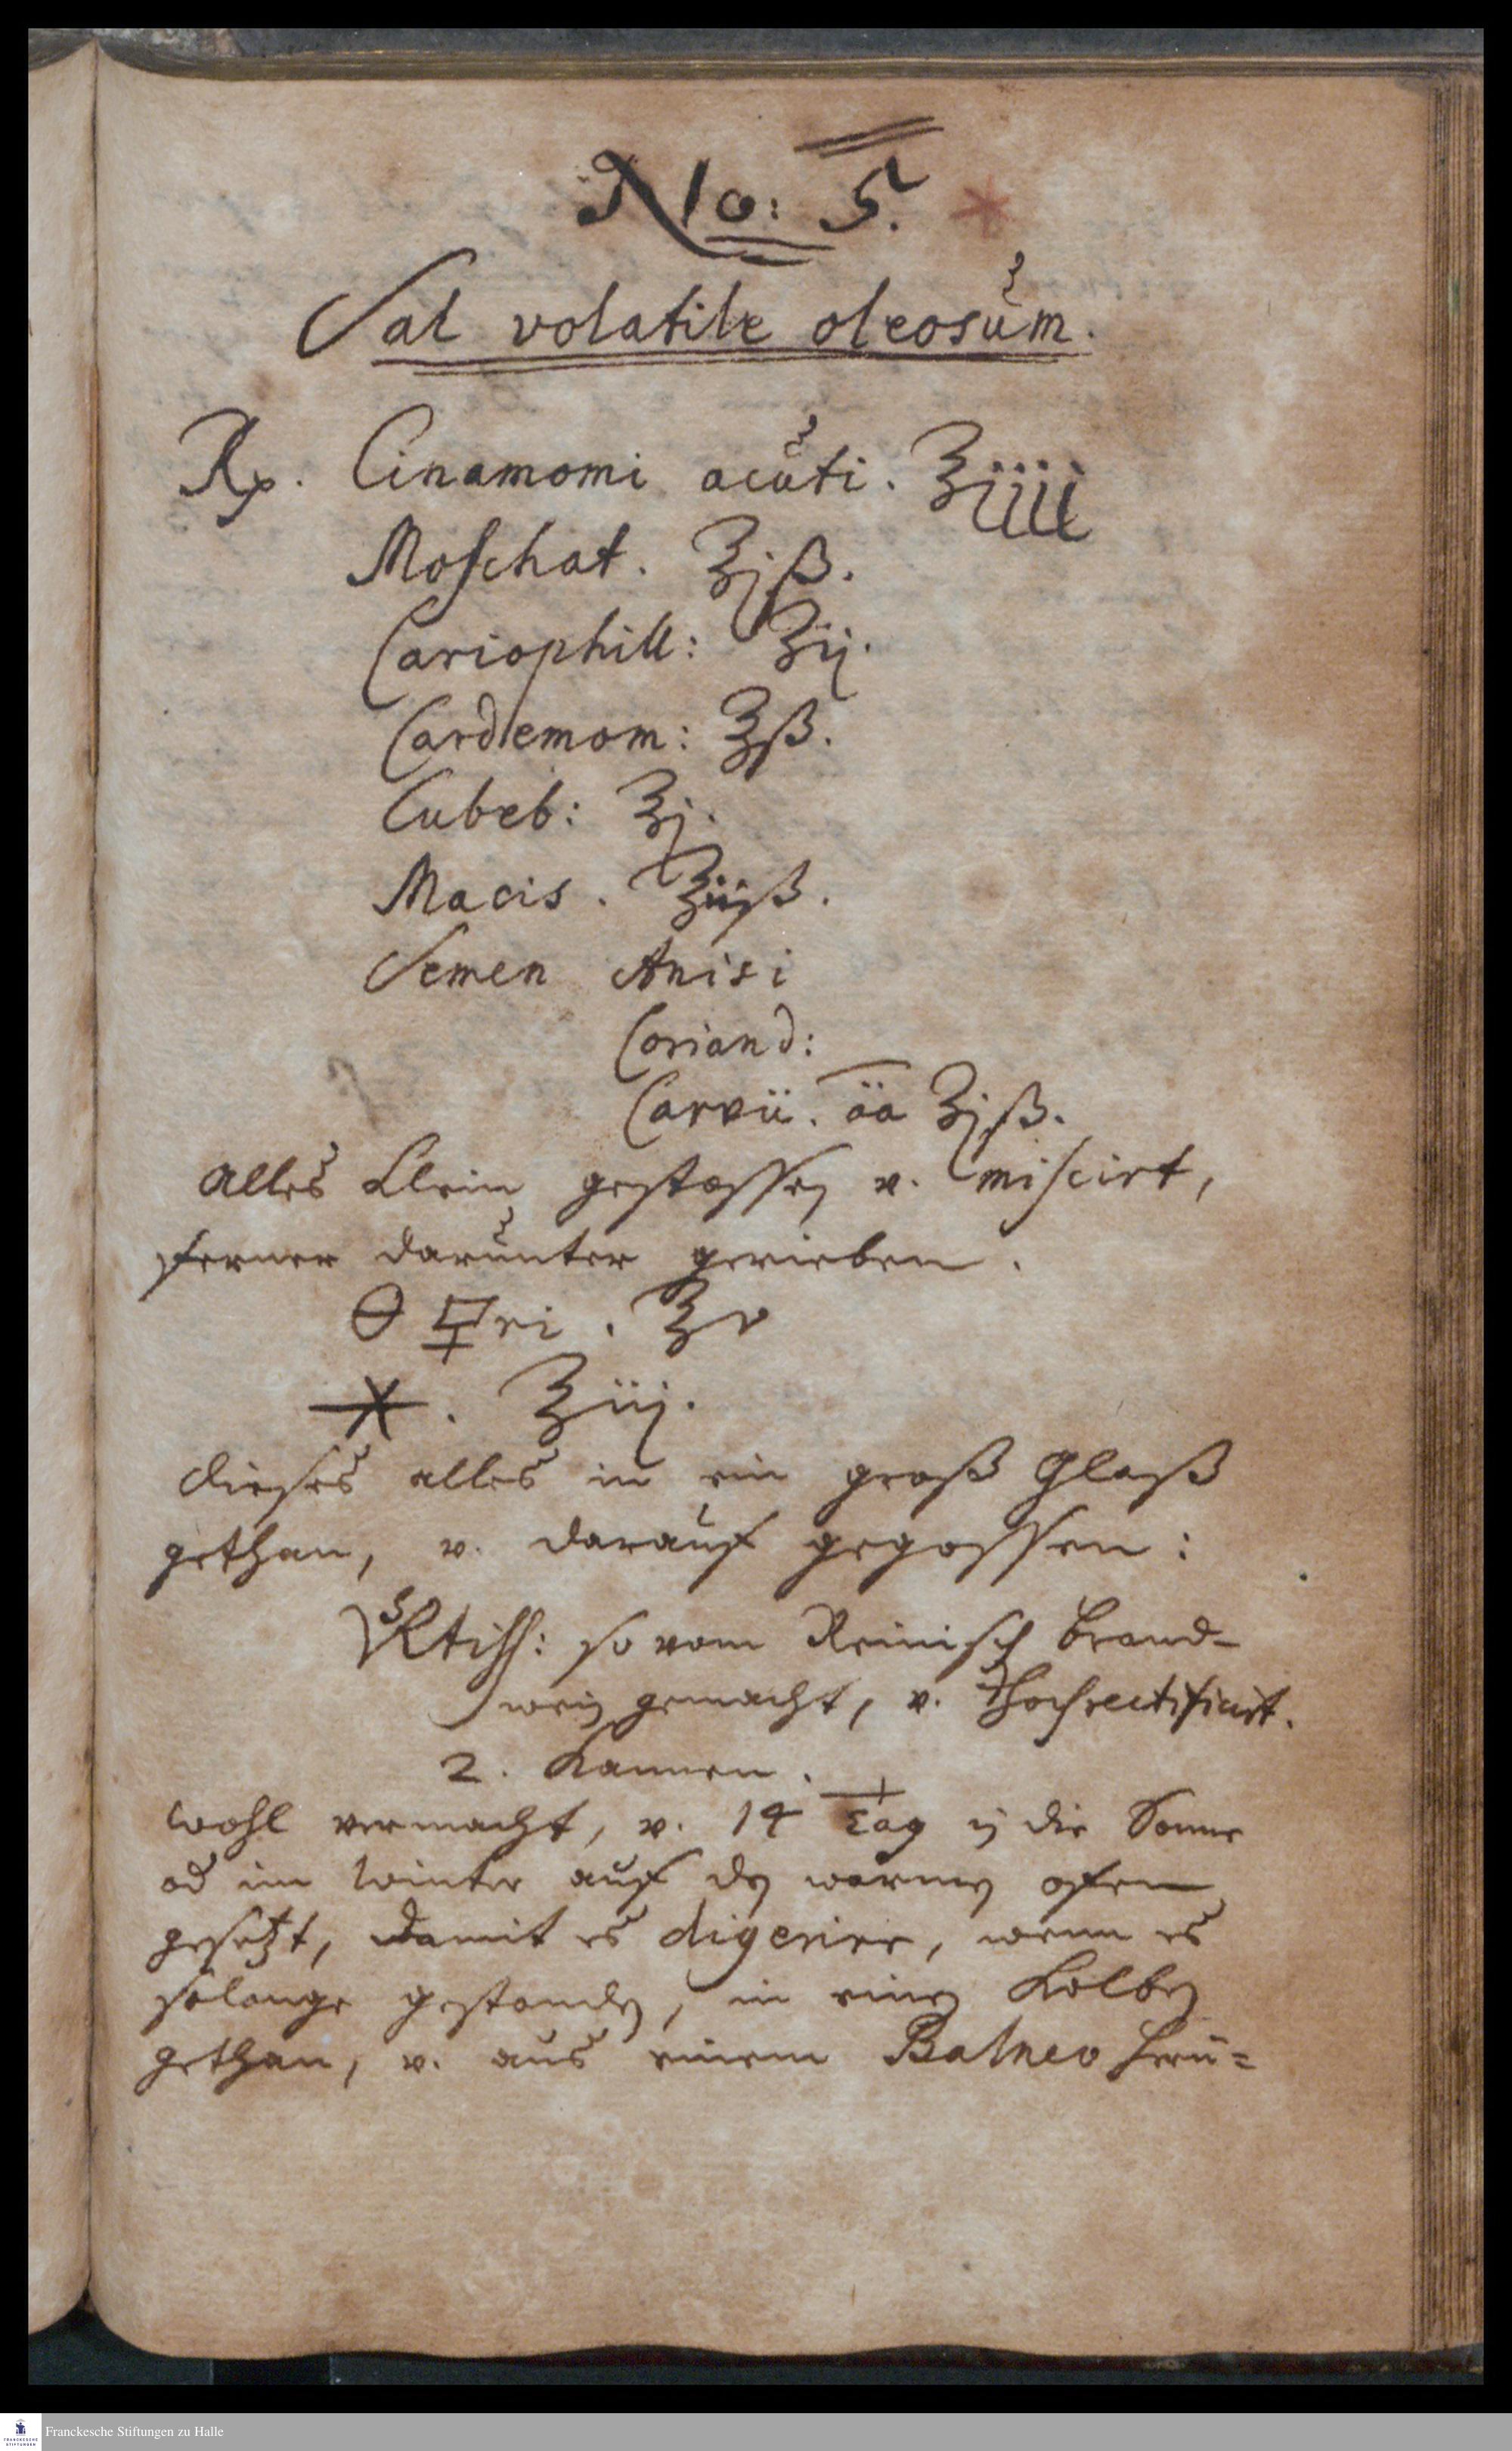 No: 5. *
Sal volatile oleosum.
Rp. Cinamomi acuti. ℥iiii
Moschat. ℥jß.
Cariophill: ℥ij.
Cardemom: ℥ß.
Cubeb: ℥j.
Macis. ℥iijß.
Semen Anisi
Coriand:
Carvii. āā ℥jß.
alles klein gestossen v. miscirt,
ferner darunter gerieben.
🜔 🜿ri. ℥v
🞶. ℥iij.
dieses alles in ein groß Glaß
gethan, v. darauf gegossen:
so vom Reinisch brand-
wein gemacht, v. hochrectificirt.
2. Kannen.
wohl vermacht, v. 14 Tag in die Sonne
od im Winter auf den warmen ofen
gesetzt, damit es digerire, wenn es
solange gestanden, in einen Kolben
gethan, v. aus einem Balneo herü=
Franckesche Stiftungen zu Halle
FRANCKESCHE
STIFTUNGEN